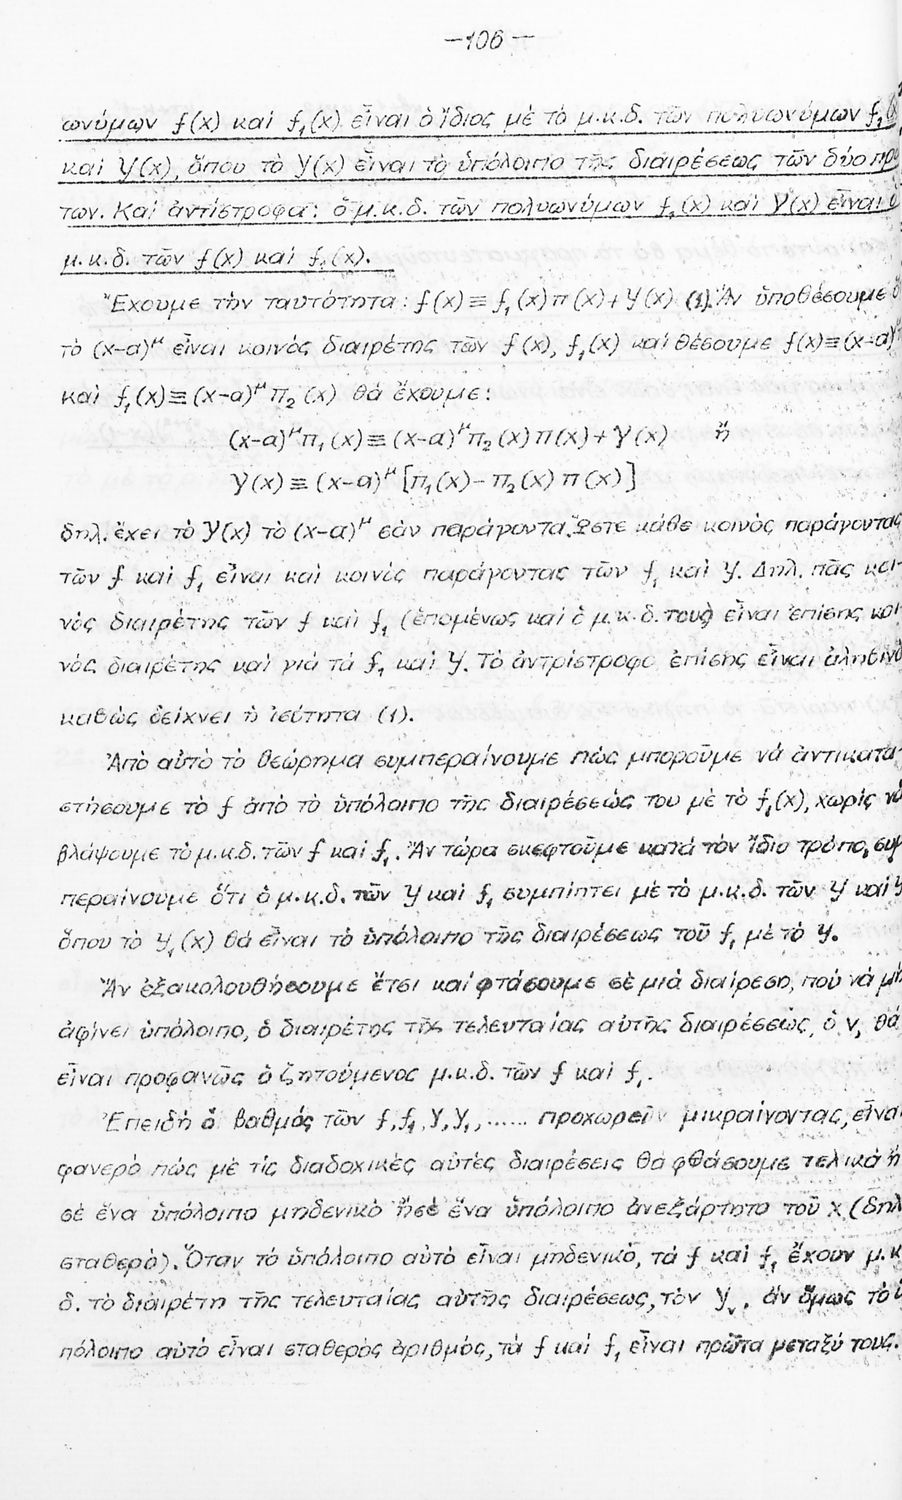 —106—
ωνύμων f(x) καὶ f₁(x) εἶναι ὁ ἴδιος μὲ τὸ μ.κ.δ. τῶν πολυωνύμων f₁(x)
καὶ Υ(x), ὅπου τὸ Υ(x) εἶναι τὸ ὑπόλοιπο τῆς διαιρέσεως τῶν δύο πρώ
των. Καὶ ἀντίστροφα: ὁ μ.κ.δ. τῶν πολυωνύμων f₁(x) καὶ Υ(x) εἶναι ὁ
μ.κ.δ. τῶν f(x) καὶ f₁(x).
Ἔχουμε τὴν ταυτότητα: f(x) ≡ f₁(x) π(x) + Υ(x) (1). Ἂν ὑποθέσουμε ὅ
τὸ (x-α)^μ εἶναι κοινὸς διαιρέτης τῶν f(x), f₁(x) καὶ θέσουμε f(x) ≡ (x-α)^μ
καὶ f₁(x) ≡ (x-α)^μ π₂(x) θὰ ἔχουμε:
(x-α)^μ π₁(x) ≡ (x-α)^μ π₂(x) π(x) + Υ(x) ἤ
Υ(x) ≡ (x-α)^μ [π₁(x) - π₂(x) π(x)]
δηλ. ἔχει τὸ Υ(x) τὸ (x-α)^μ σὰν παράγοντα. Ὥστε κάθε κοινὸς παράγοντας
τῶν f καὶ f₁ εἶναι καὶ κοινὸς παράγοντας τῶν f₁ καὶ Υ. Δηλ. πᾶς κοι-
νὸς διαιρέτης τῶν f καὶ f₁ (ἑπομένως καὶ ὁ μ.κ.δ. τους) εἶναι ἐπίσης κοι
νὸς διαιρέτης καὶ γιὰ τὰ f₁ καὶ Υ. Τὸ ἀντρίστροφο ἐπίσης εἶναι ἀληθινὸ
καθὼς δείχνει ἡ ἰσότητα (1).
Ἀπὸ αὐτὸ τὸ θεώρημα συμπεραίνουμε πὼς μποροῦμε νὰ ἀντικατα-
στήσουμε τὸ f ἀπὸ τὸ ὑπόλοιπο τῆς διαιρέσεώς του μὲ τὸ f₁(x), χωρὶς νὰ
βλάψουμε τὸ μ.κ.δ. τῶν f καὶ f₁. Ἂν τώρα σκεφτοῦμε κατὰ τὸν ἴδιο τρόπο, συμ
περαίνουμε ὅτι ὁ μ.κ.δ. τῶν Υ καὶ f₁ συμπίπτει μὲ τὸ μ.κ.δ. τῶν Υ καὶ Υ
ὅπου τὸ Υ₁(x) θὰ εἶναι τὸ ὑπόλοιπο τῆς διαιρέσεως τοῦ f₁ μὲ τὸ Υ.
Ἂν ἐξακολουθήσουμε ἔτσι καὶ φτάσουμε σὲ μιὰ διαίρεση, ποὺ νὰ μὴ
ἀφίνει ὑπόλοιπο, ὁ διαιρέτης τῆς τελευταίας αὐτῆς διαιρέσεως, ὁ ν, θὰ
εἶναι προφανῶς ὁ ζητούμενος μ.κ.δ. τῶν f καὶ f₁.
Ἐπειδὴ ὁ βαθμός τῶν f, f₁, Υ, Υ₁, ...... προχωρεῖ μικραίνοντας, εἶναι
φανερὸ πὼς μὲ τὶς διαδοχικὲς αὐτὲς διαιρέσεις θὰ φθάσουμε τελικὰ ἢ
σὲ ἕνα ὑπόλοιπο μηδενικὸ ἢ σὲ ἕνα ὑπόλοιπο ἀνεξάρτητο τοῦ x (δηλ
σταθερὸ). Ὅταν τὸ ὑπόλοιπο αὐτὸ εἶναι μηδενικό, τὰ f καὶ f₁ ἔχουν μ.κ
δ. τὸ διαιρέτη τῆς τελευταίας αὐτῆς διαιρέσεως, τὸν Υᵥ. ἂν ὅμως τὸ ὑ
πόλοιπο αὐτὸ εἶναι σταθερὸς ἀριθμός, τὰ f καὶ f₁ εἶναι πρῶτα μεταξύ τους.